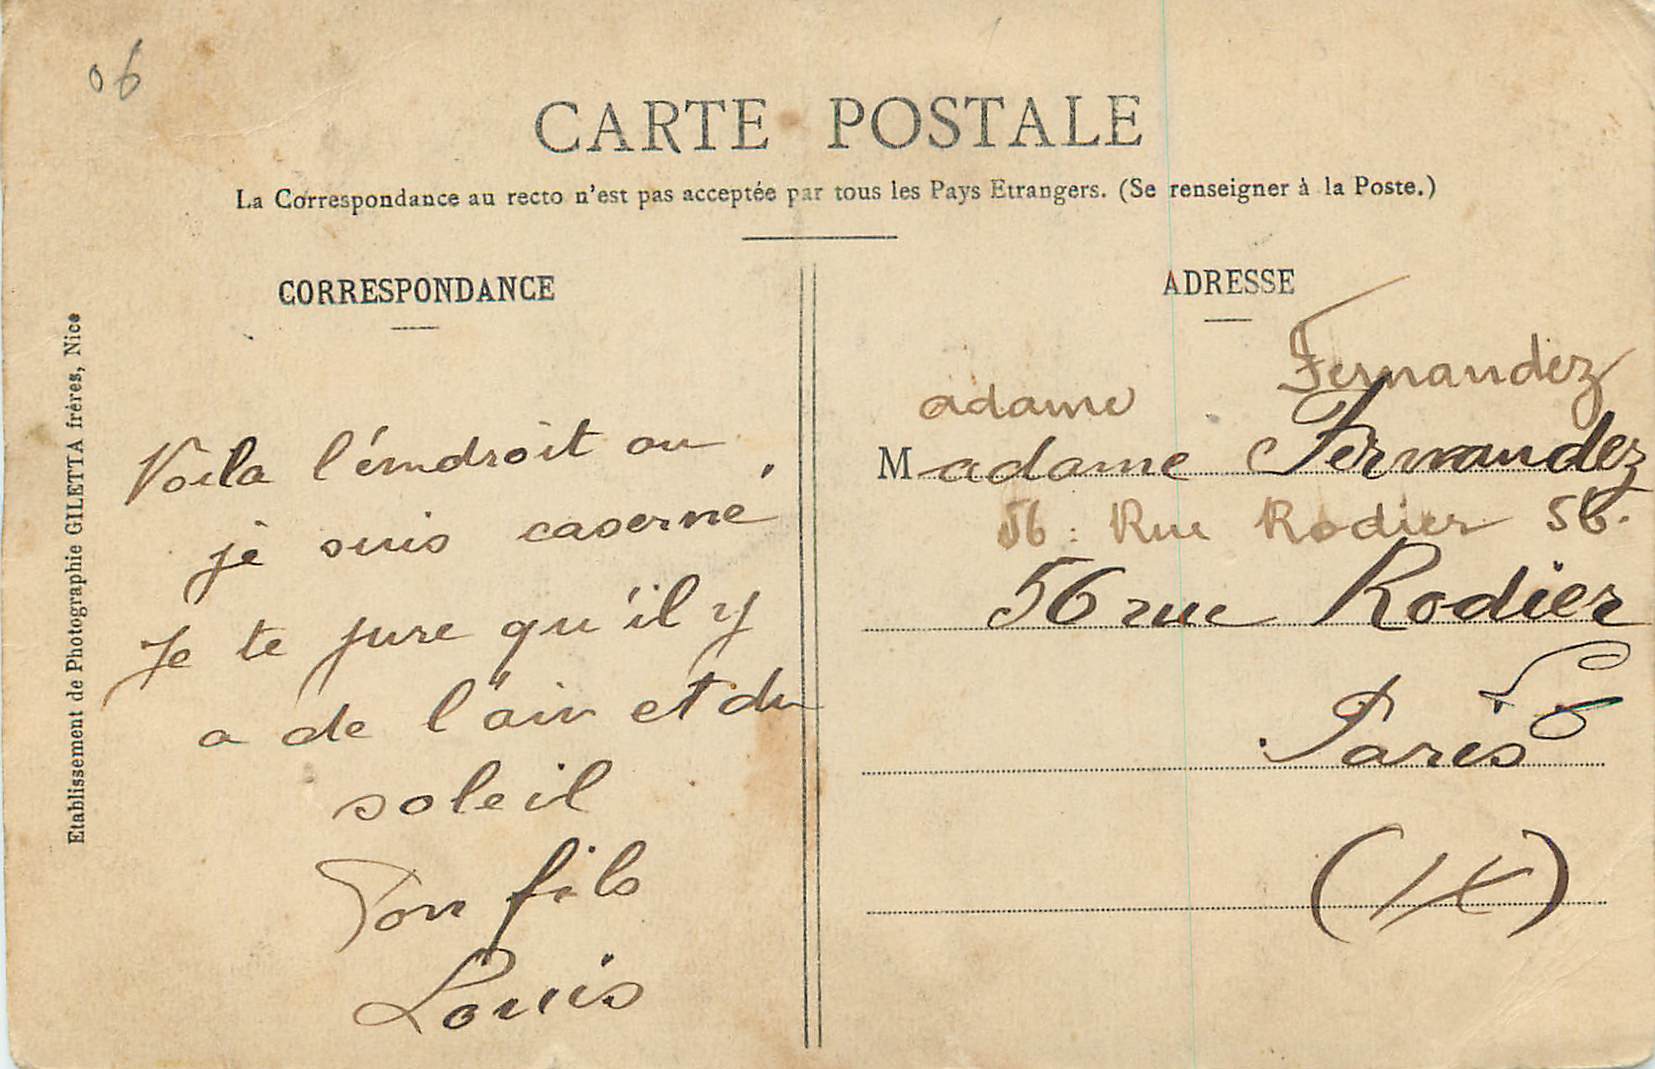 06
CARTE POSTALE
La Correspondance au recto n'est pas acceptée par tous les Pays Etrangers. (Se renseigner à la Poste.)
CORRESPONDANCE
Etablissement de Photographie GILETTA frères, Nice
Voila l'émdroit ou
je suis caserné,
Je te jure qu'il y
a de l'air et du
soleil
Ton fils
Louis
ADRESSE
Fernandez
adame
Madame Fernandez
56 : Rue Rodier 56.
56 rue Rodier
Paris
(IX)